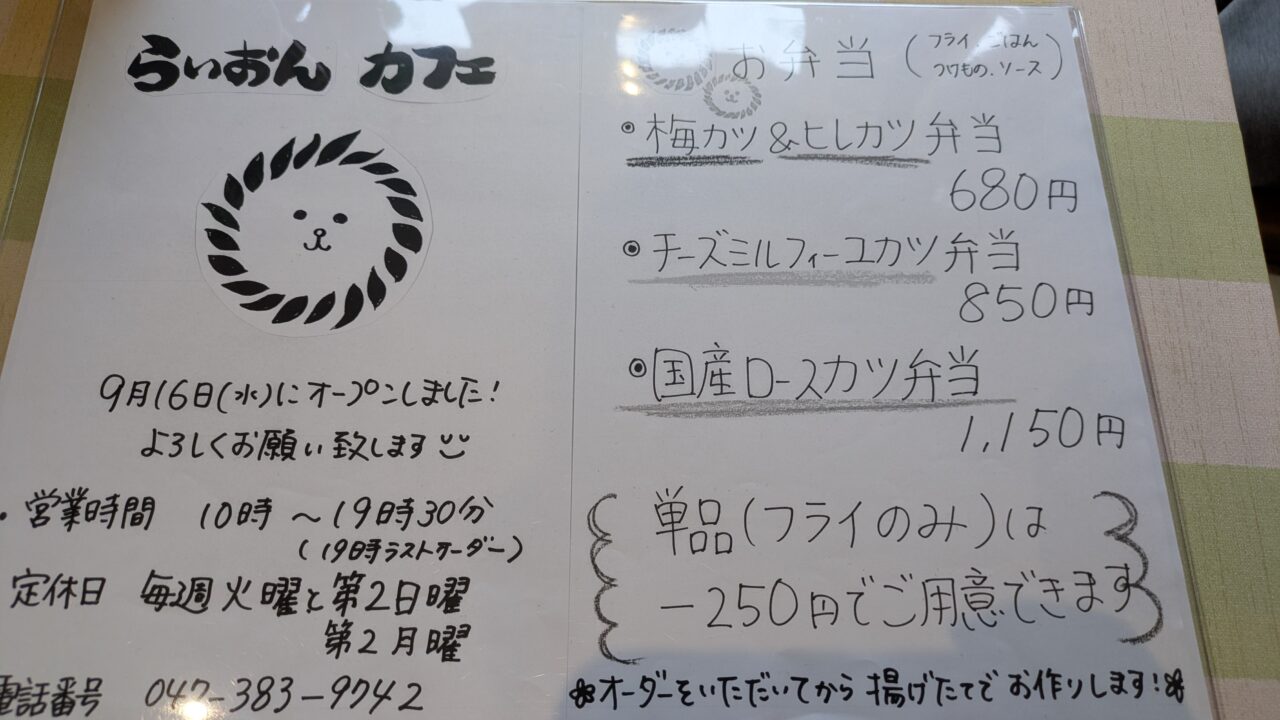 らいおん カフェ
9月16日(水)にオープンしました!
よろしくお願い致します
・営業時間 10時 〜19時30分
(19時ラストオーダー)
定休日 毎週火曜と第2日曜
第2月曜
電話番号 047-383-9742
お弁当 (フライ、ごはん
つけもの、ソース)
◉梅カツ&ヒレカツ弁当
680円
◉チーズミルフィーユカツ弁当
850円
◉国産ロースカツ弁当
1,150円
単品(フライのみ)は
-250円でご用意できます
オーダーをいただいてから揚げたてでお作りします!